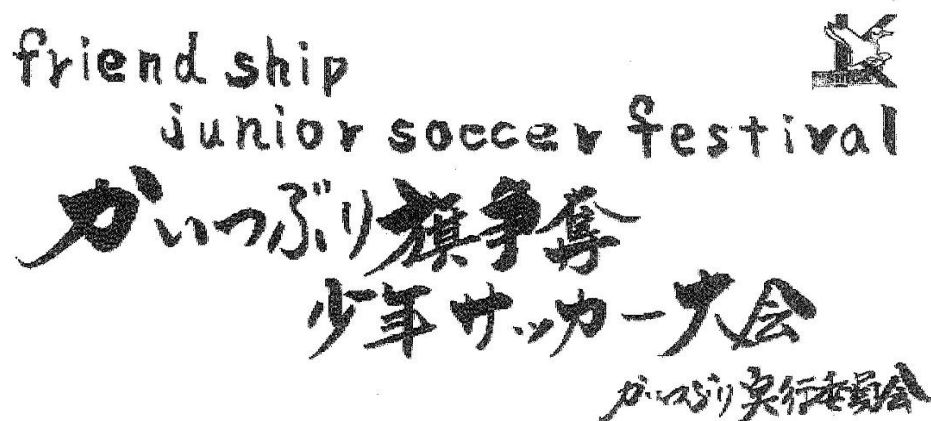 friend ship
junior soccer festival
かいつぶり旗争奪
少年サッカー大会
かいつぶり実行委員会